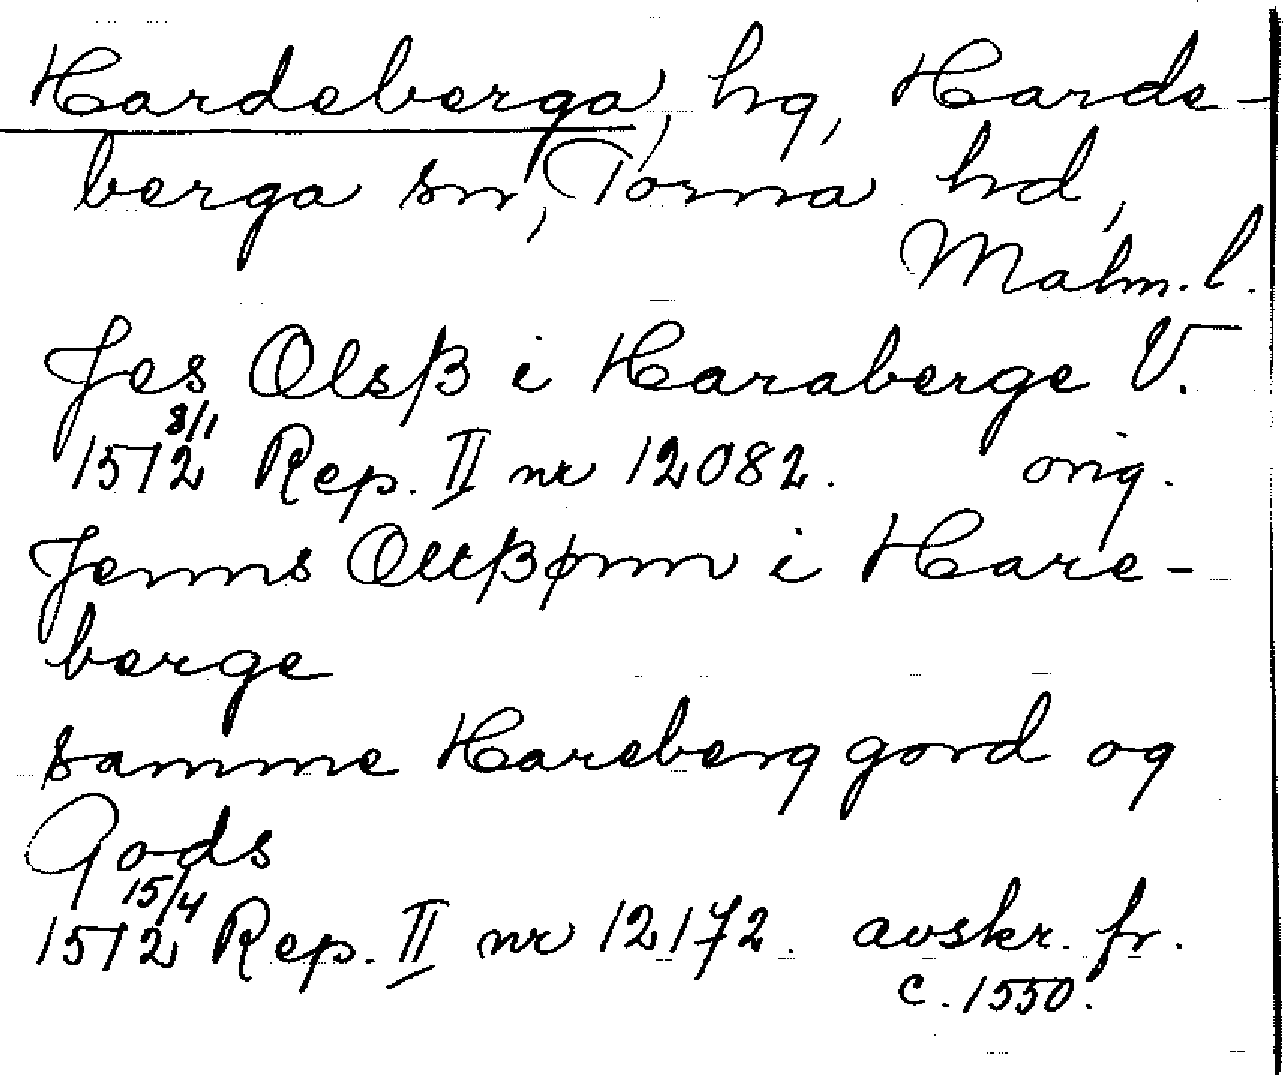 Hardeberga, hg, Harde-
berga sn, Torna hd,
Malm. l.
Jes Olsβ i Haraberge V.
1512 8/1 Rep. II nr 12082. orig.
Jenns Olltβønn i Hare-
berge
samme Hareberg gord og
Gods
1512 15/4 Rep. II nr 12172. avskr. fr.
c. 1550.